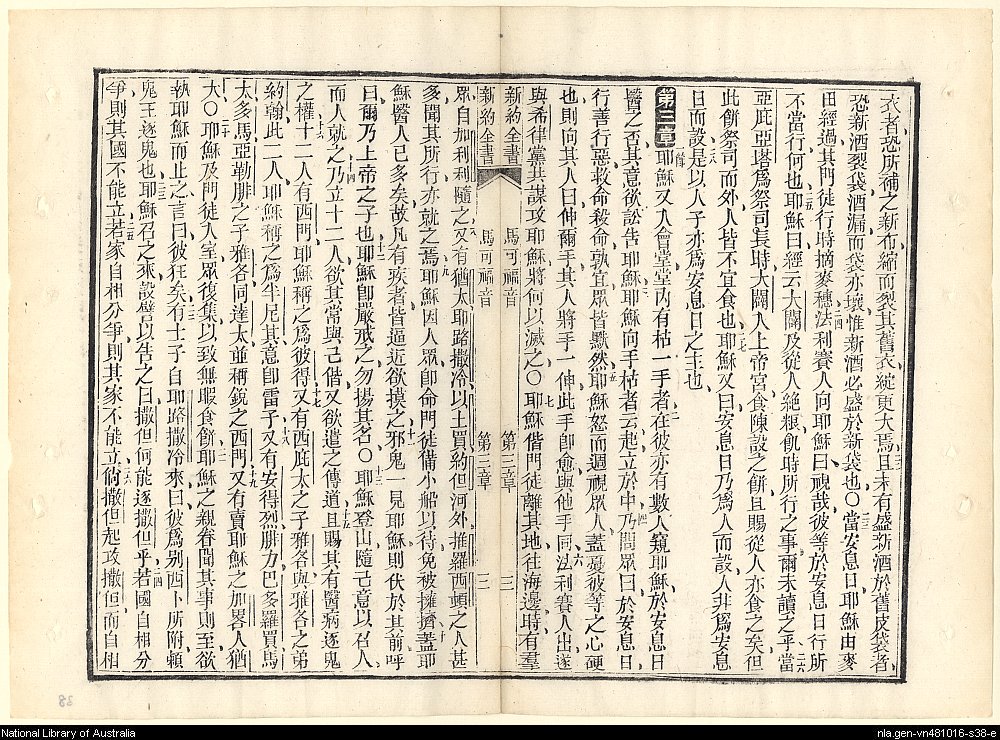 衣者恐所補之新布縮而裂其舊衣綻更大焉且未有盛新酒於舊皮袋者
恐新酒裂袋酒漏而袋亦壞惟新酒必盛於新袋也○當安息日耶穌由麥
田經過其門徒行時摘麥穗法利賽人向耶穌曰視哉彼等於安息日行所
不當行何也耶穌曰經云大闢及從人絶粮飢時所行之事爾未讀之乎當
亞庇亞塔爲祭司長時大闢入上帝宮食陳設之餅且賜從人亦食之矣但
此餅祭司而外人皆不宜食也耶穌又曰安息日乃爲人而設人非爲安息
日而設是以人子亦爲安息日之主也
第三章 耶穌又入會堂堂內有枯一手者在彼亦有數人窺耶穌於安息日
醫之否其意欲訟告耶穌耶穌向手枯者云起立於中乃問眾曰於安息日
行善行惡救命殺命孰宜眾皆默然耶穌怒而週視眾人蓋憂彼等之心硬
也則向其人曰伸爾手其人將手一伸此手即愈與他手同法利賽人出遂
與希律黨共謀攻耶穌將何以滅之○耶穌偕門徒離其地往海邊時有羣
新約全書 馬可福音 第三章 三
新約全書 馬可福音 第三章 三
眾自加利利隨之又有猶太耶路撒冷以土買約但河外推羅西頓之人甚
多聞其所行亦就之焉耶穌因人眾即命門徒備小船以待免被擁擠蓋耶
穌醫人已多矣故凡有疾者皆逼近欲摸之邪鬼一見耶穌則伏於其前呼
曰爾乃上帝之子也耶穌即嚴戒之勿揚其名○耶穌登山隨己意以召人
而人就之乃立十二人欲其常與己偕又欲遣之傳道且賜其有醫病逐鬼
之權十二人有西門耶穌稱之爲彼得又有西庇太之子雅各與雅各之弟
約翰此二人耶穌稱之爲半尼其意即雷子又有安得烈腓力巴多羅買馬
太多馬亞勒腓之子雅各同達太並稱銳之西門又有賣耶穌之加畧人猶
大○耶穌及門徒入室眾復集以致無暇食餅耶穌之親眷聞其事則至欲
執耶穌而止之言曰彼狂矣有士子自耶路撒冷來曰彼爲别西卜所附賴
鬼王逐鬼也耶穌召之來設譬以告之曰撒但何能逐撒但乎若國自相分
爭則其國不能立若家自相分爭則其家不能立倘撒但起攻撒但而自相
38
National Library of Australia
nla.gen-vn481016-s38-e